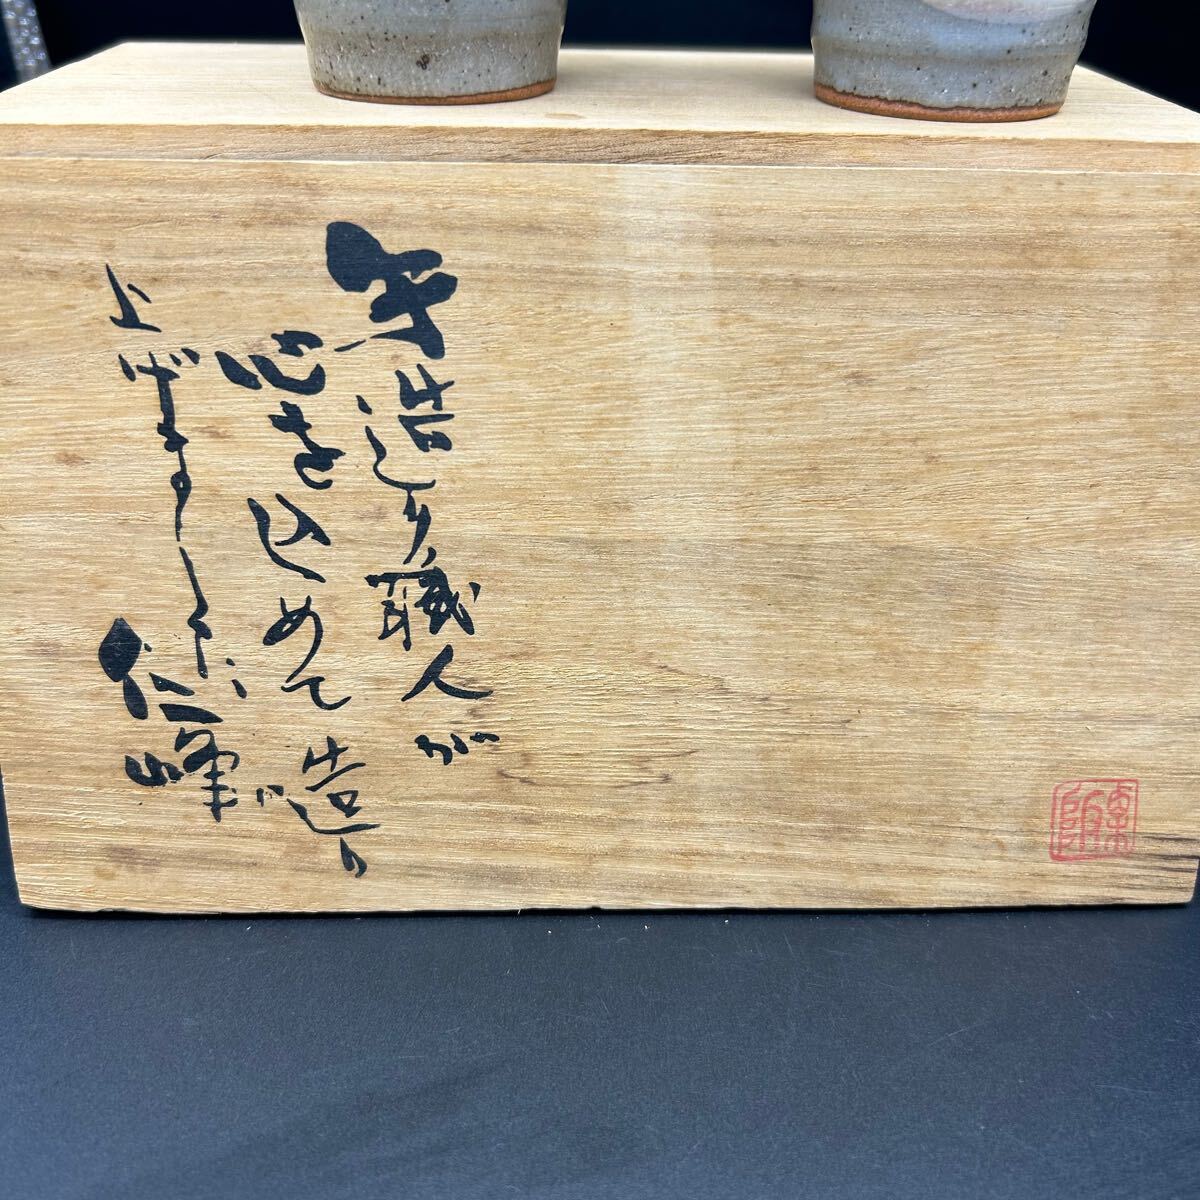 手造り職人が
心をこめて造り
上げました
仁峰